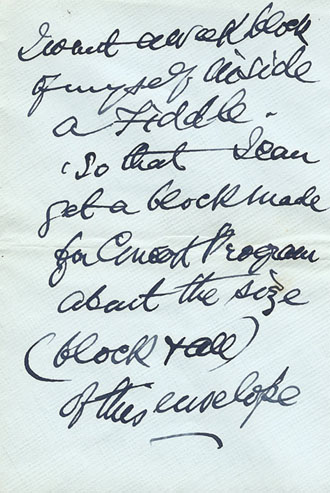 I want a week block
of myself inside
a Fiddle.
So that I can
get a block made
for Concert Program
about the size
(block & all)
of this envelope